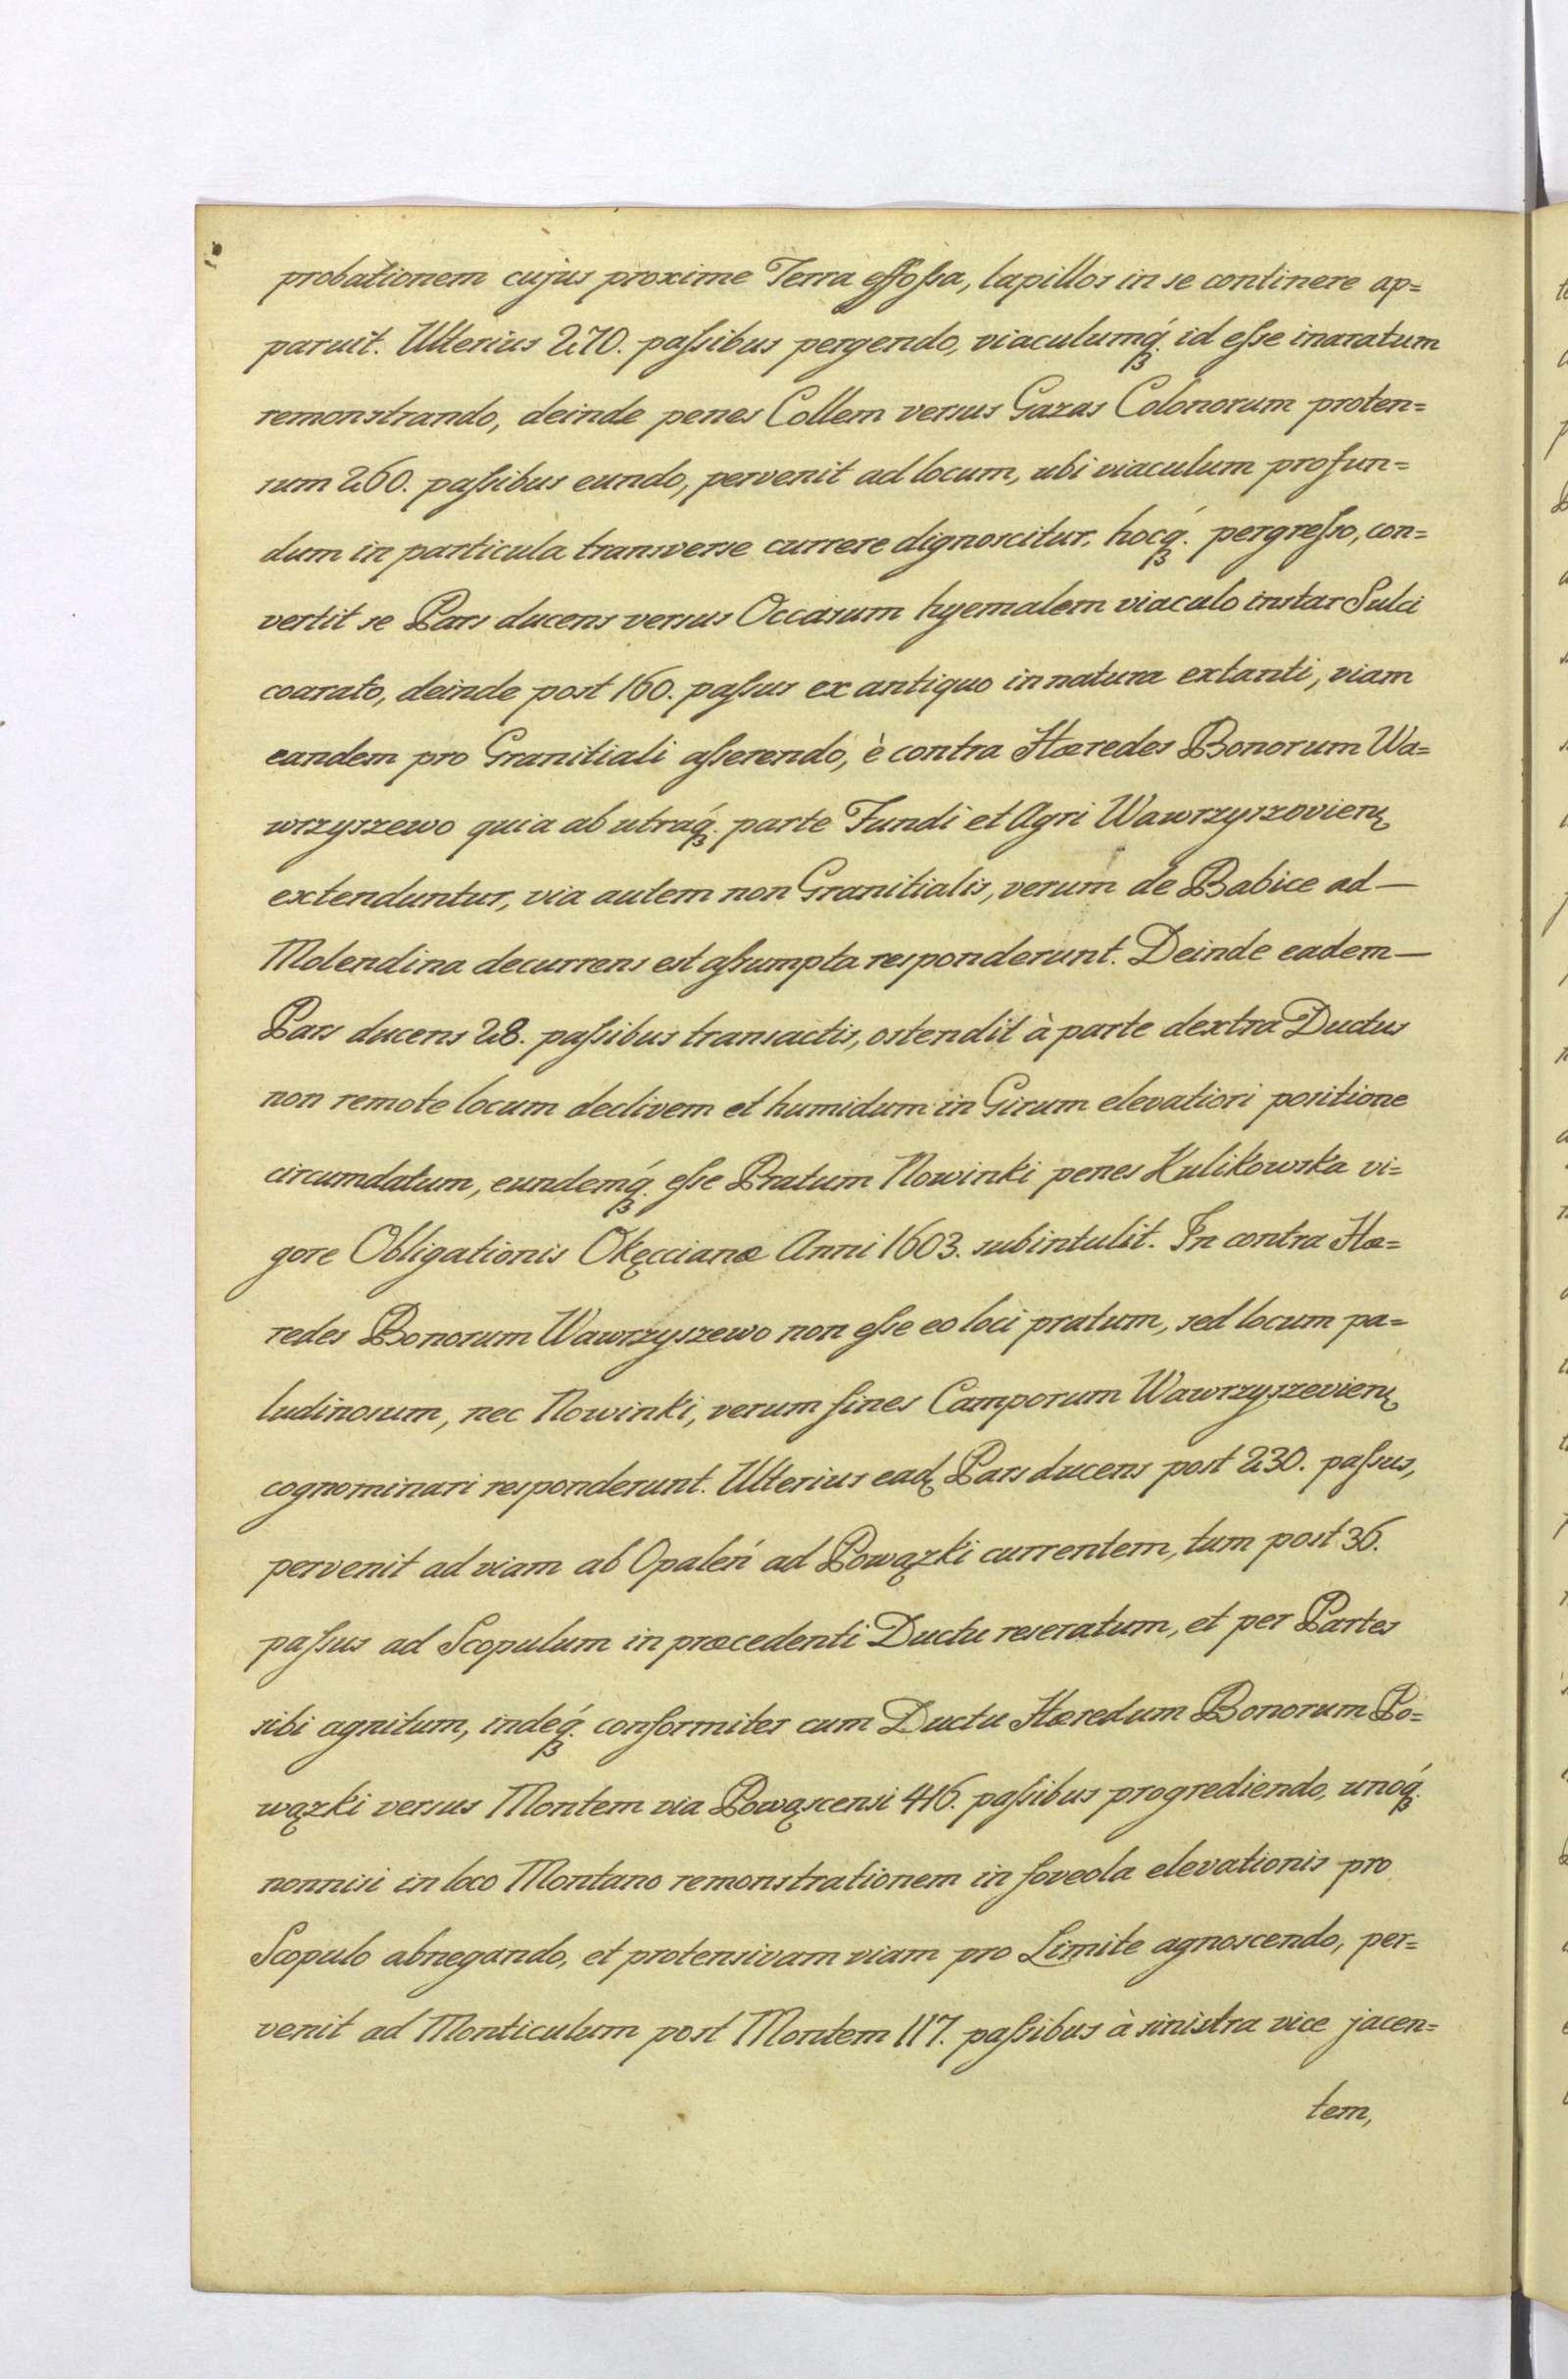 probationem cujus proxime Terra effoſsa, lapillos in se continere ap=
paruit. Ulterius 270. paſsibus pergendo, viaculumq́ꝫ id eſse inaratum
remonstrando, deinde penes Collem versus Gazas Colonorum proten=
sum 260. paſsibus eundo, pervenit ad locum, ubi viaculum profun=
dum in particula transverse currere dignoscitur, hocq́ꝫ pergreſso, con=
vertit se Pars ducens versus Occasum hyemalem viaculo instar Sulci
coarato, deinde post 160. paſsus ex antiquo in natura extanti, viam
eandem pro Granitiali aſserendo, è contra Hæredes Bonorum Wa=
wrzyszewo quia ab utraq́ꝫ parte Fundi et Agri Wawrzyszovieną
extenduntur, via autem non Granitialis, verum de Babice ad—
Molendina decurrens est aſsumpta responderunt. Deinde eadem—
Pars ducens 28. paſsibus transactis, ostendit à parte dextra Ductus
non remote locum declivem et humidum in Girum elevatiori positione
circumdatum, eundemq́ꝫ eſse Pratum Nowinki penes Kulikowska vi=
gore Obligationis Okęccianæ Anni 1603. subintulit. In contra Hæ=
redes Bonorum Wawrzyszewo non eſse eo loci pratum, sed locum pa=
ludinosum, nec Nowinki, verum fines Camporum Wawrzyszevieną
cognominari responderunt. Ulterius eadę Pars ducens post 230. paſsus,
pervenit ad viam ab Opaleń ad Powązki currentem, tum post 36.
paſsus ad Scopulum in præcedenti Ductu reseratum, et per Partes
sibi agnitum, indeq́ꝫ conformiter cum Ductu Hæredum Bonorum Po=
wązki versus Montem via Powąscensi 416. paſsibus progrediendo, unoq́ꝫ
nonnisi in loco Montano remonstrationem in foveola elevationis pro
Scopulo abnegando, et protensivam viam pro Limite agnoscendo, per=
venit ad Monticulum post Montem 117. paſsibus à sinistra vice jacen=
tem,